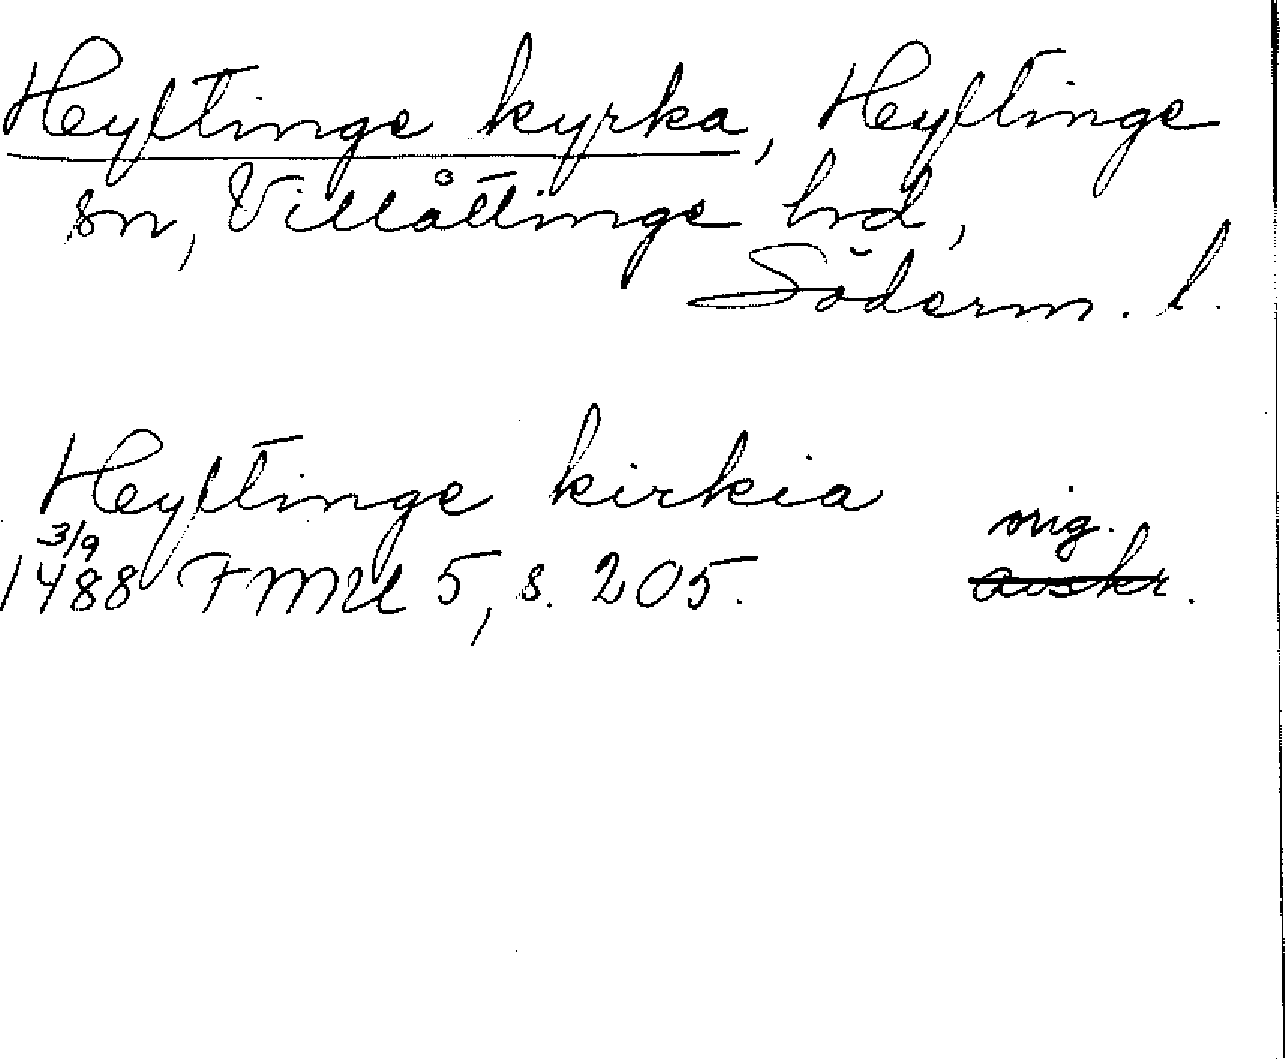 Hyltinge kyrka, Hyltinge
sn, Villåttinge hd,
Söderm. l.
Hyltinge kirkia
orig.
3/9
1488 FMU 5, s. 205. avskr.